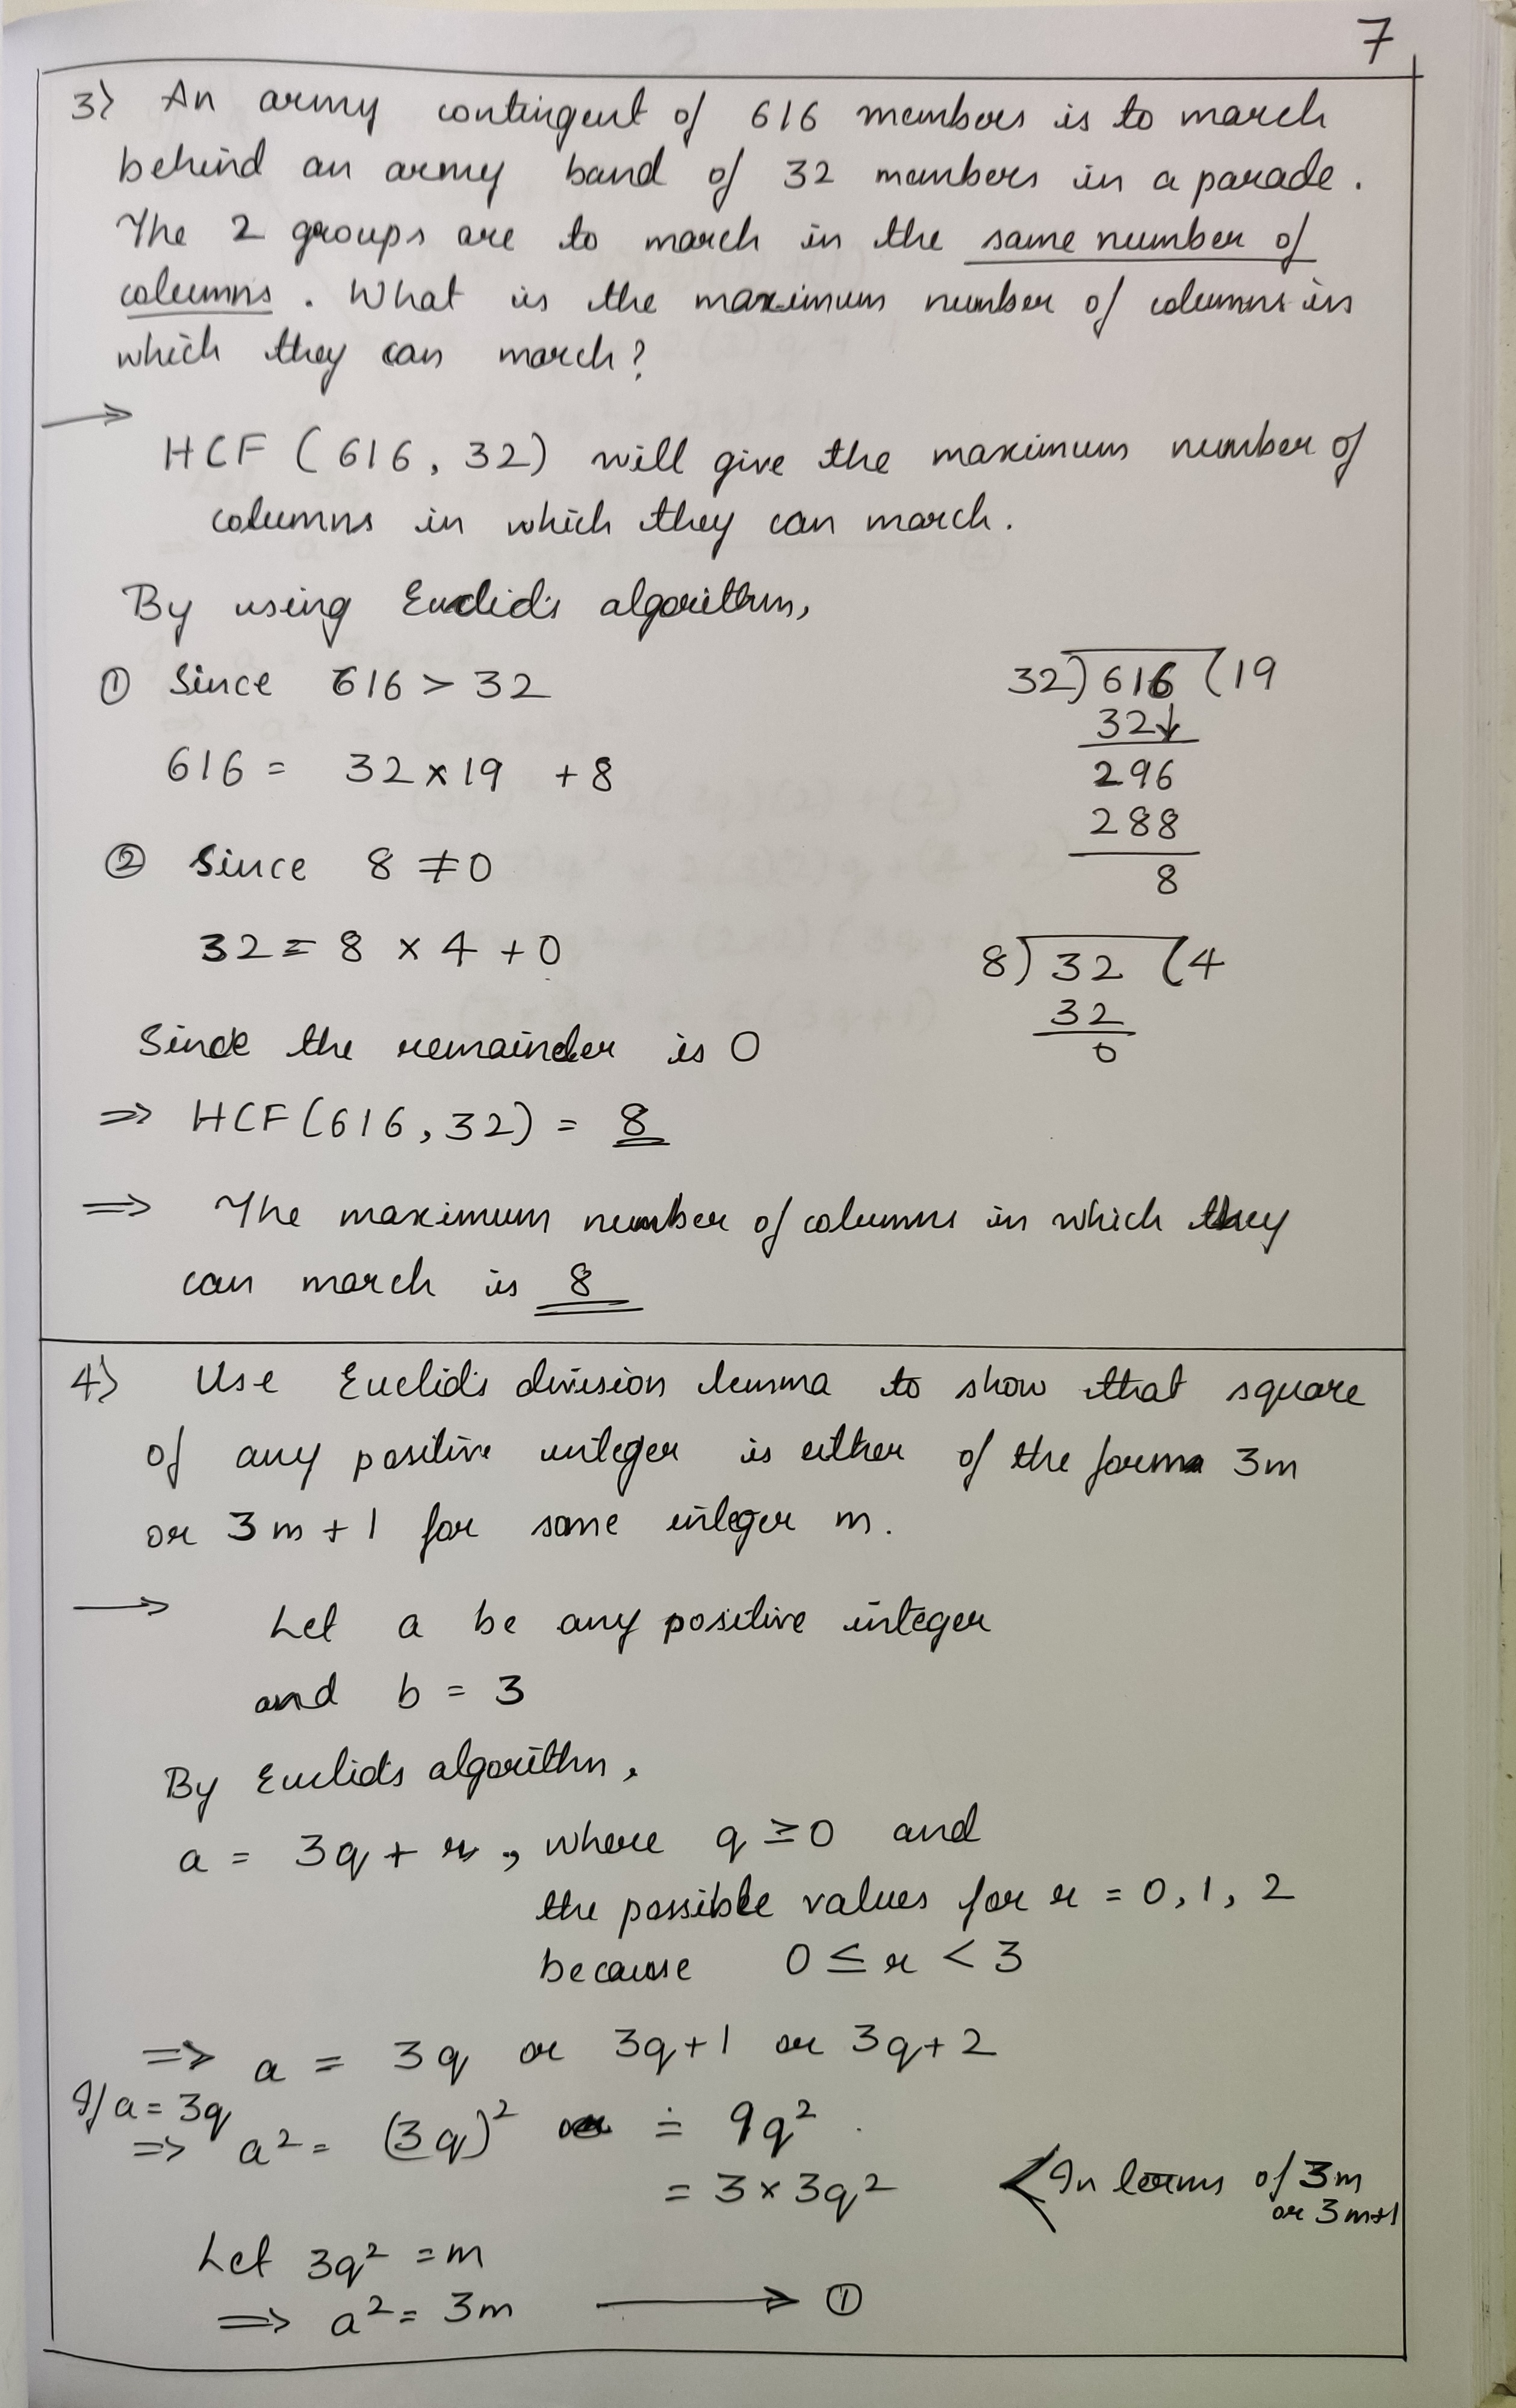 7
3) An army contingent of 616 members is to march
behind an army band of 32 members in a parade.
The 2 groups are to march in the same number of
columns. What is the maximum number of columns in
which they can march?
→
HCF (616, 32) will give the maximum number of
columns in which they can march.
By using Euclid's algorithm,
① Since 616 > 32
32) 616 (19
32↓
616 = 32 × 19 + 8
296
288
② Since 8 ≠ 0
8
32 = 8 × 4 + 0
8) 32 (4
32
Since the remainder is 0
0
⇒ HCF (616, 32) = 8
⇒ The maximum number of columns in which they
can march is 8
4) Use Euclid's division lemma to show that square
of any positive integer is either of the form 3m
or 3m + 1 for some integer m.
→ Let a be any positive integer
and b = 3
By Euclid's algorithm,
a = 3q + r, where q ≥ 0 and
the possible values for r = 0, 1, 2
because 0 ≤ r < 3
⇒ a = 3q or 3q+1 or 3q+2
If a = 3q
⇒ a² = (3q)² = 9q²
= 3 × 3q²
< In terms of 3m
or 3m+1
Let 3q² = m
⇒ a² = 3m → ①